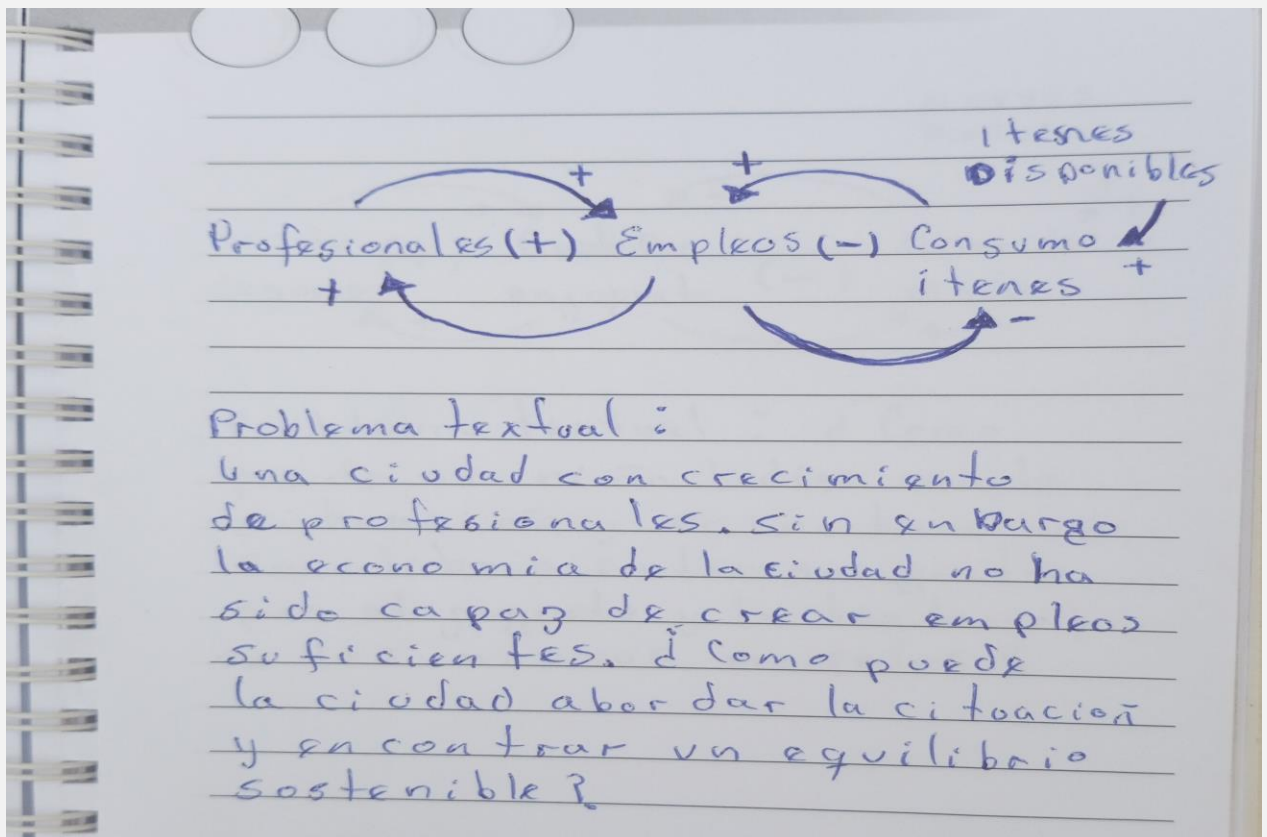 itesnes
Disponibles
+ +
Profesionales (+) Empleos (-) Consumo
+ itenes +
-
Problema textual :
Una ciudad con crecimiento
de profesionales. sin enbargo
la economia de la ciudad no ha
sido capaz de crear empleos
suficientes. ¿Como puede
la ciudad abordar la cituación
y encontrar un equilibrio
sostenible?